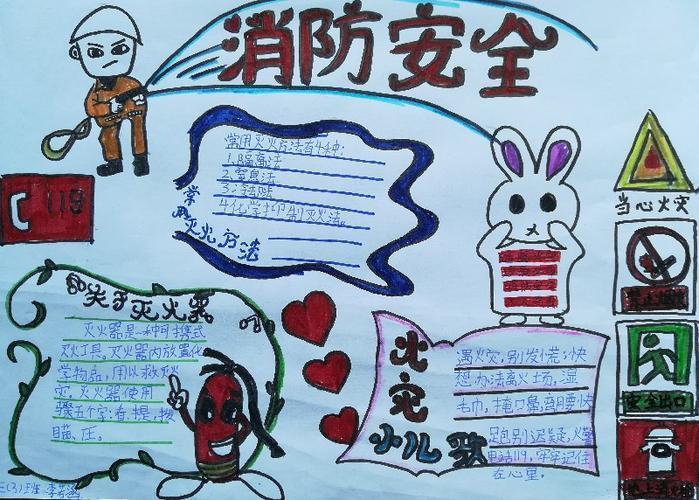 消防安全
常用灭火方法有4种:
1.隔离法
2.窒息法
4.化学抑制灭火法。
常用
灭火方法
119
当心火灾
禁止烟火
安全出口
关于灭火器
灭火器是一种可携式
灭火工具。灭火器内放置化
学物品,用以救灭火
灾,灭火器使用
骤五个字:看,提,拨
瞄,压。
火灾
小儿歌
遇火灾,别发慌,快
想办法离火场,湿
毛巾,掩口鼻,弯腰快
跑别迟疑,火警
电话119,牢牢记住
在心里。
三(3)班